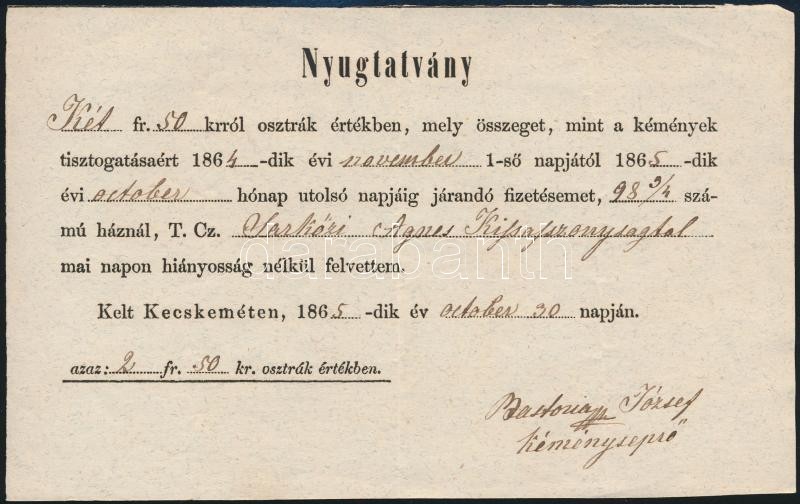 Nyugtatvány
Két fr. 50 krról osztrák értékben, mely összeget, mint a kémények
tisztogatásaért 1864 -dik évi november 1-ső napjától 1865 -dik
évi october hónap utolsó napjáig járandó fizetésemet, 98 3/4 szá-
mú háznál, T. Cz. Sarközi Agnes Kissaszonysagtol
mai napon hiányosság nélkül felvettem.
Kelt Kecskeméten, 1865 -dik év october 30 napján.
azaz: 2 fr. 50 kr. osztrák értékben.
József
kéményseprő
darabanth